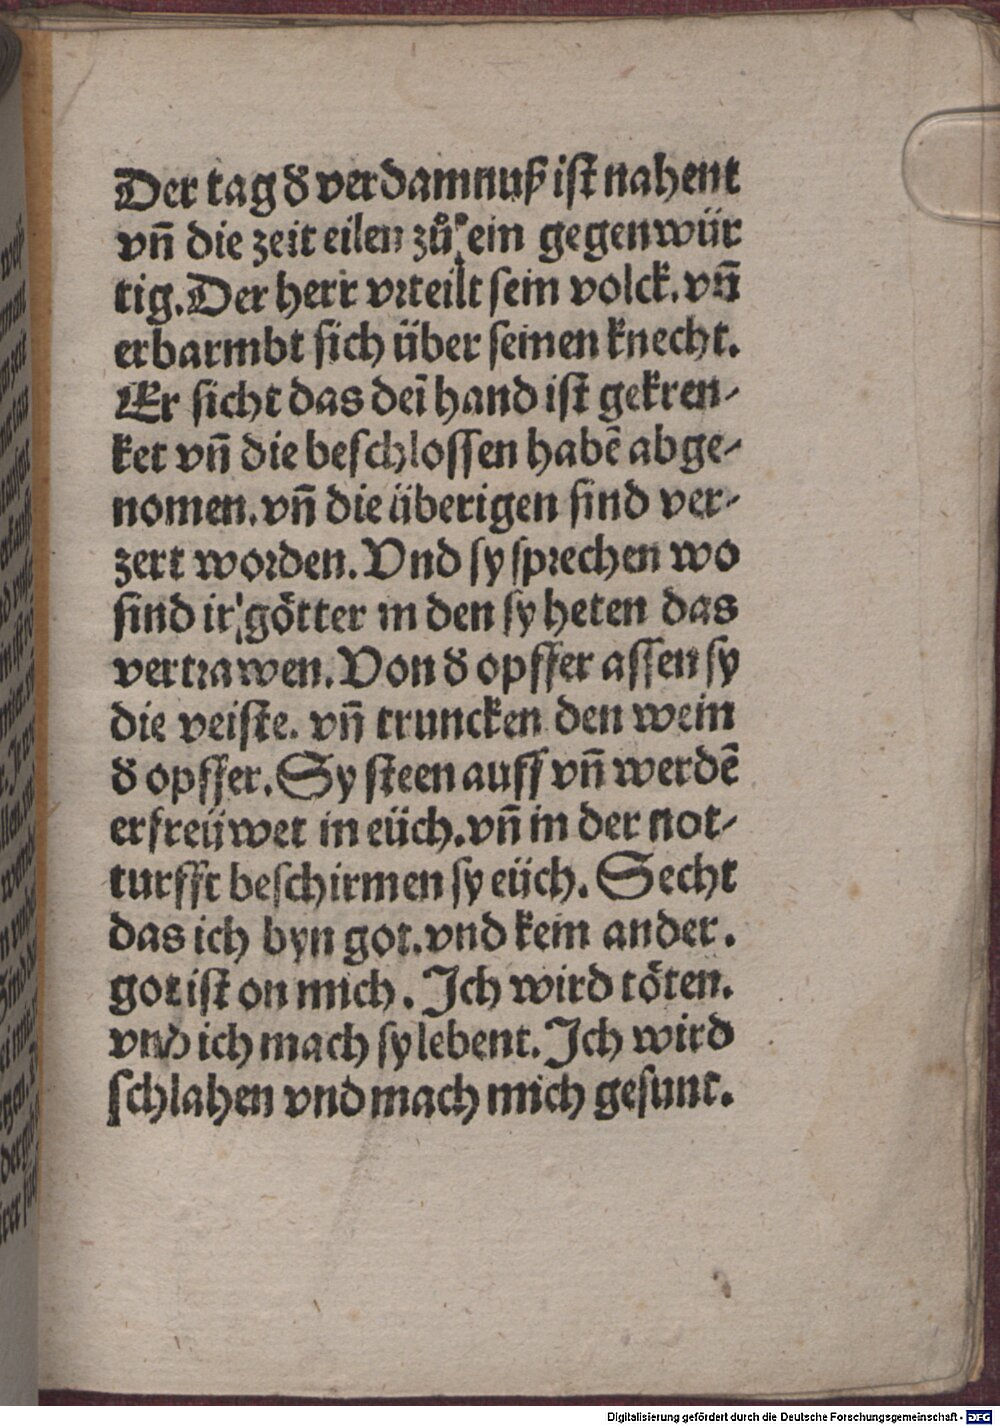 Der tag đ verdamnuß ist nahent
vñ die zeit eilen zů sein gegenwür
tig. Der herr vrteilt sein volck. vñ
erbarmbt sich über seinen knecht.
Er sicht das deī hand ist gekren-
ket vñ die beschlossen habē abge-
nomen. vñ die überigen sind ver-
zert worden. Vnd sy sprechen wo
sind ir götter in den sy heten das
vertrawen. Von đ opffer assen sy
die veiste. vñ truncken den wein
đ opffer. Sy steen auff vñ werdē
erfreüwet in eüch. vñ in der not-
turfft beschirmen sy eüch. Secht
das ich byn got. vnd kein ander.
got ist on mich. Ich wird töten.
vnd ich mach sy lebent. Ich wird
schlahen vnd mach mich gesunt.
Digitalisierung gefördert durch die Deutsche Forschungsgemeinschaft - DFG